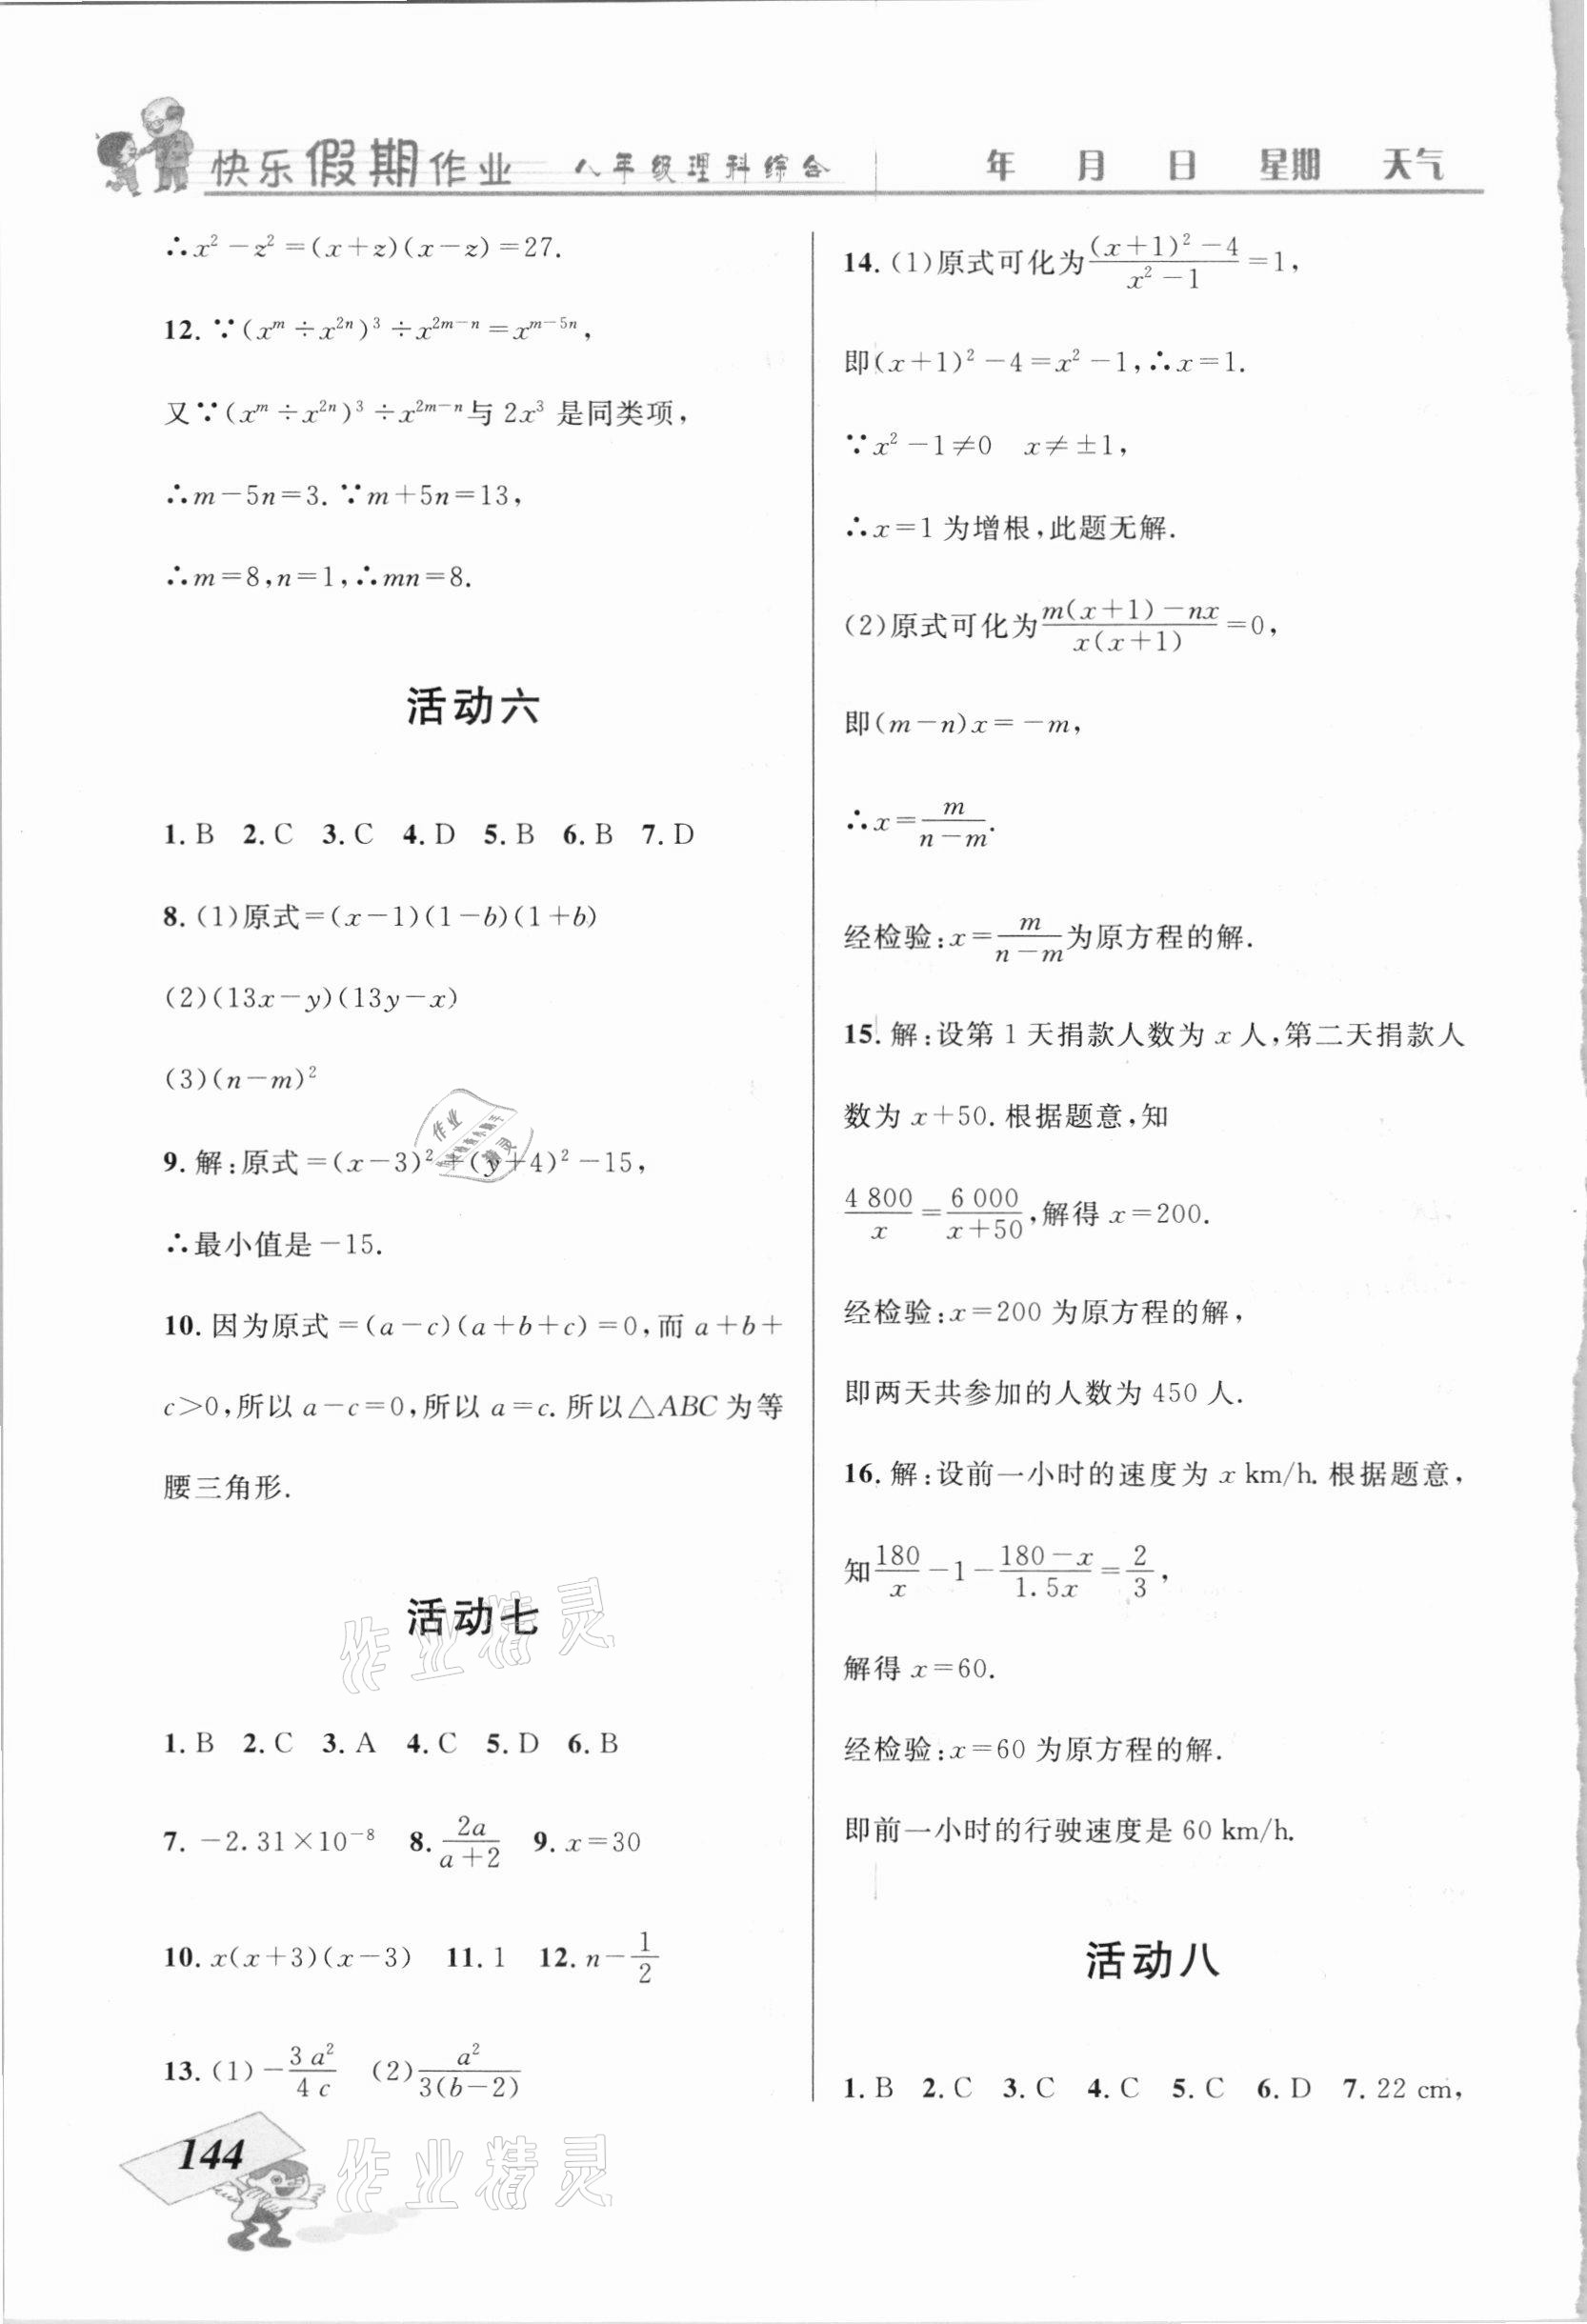 快乐假期作业 八年级理科综合 年 月 日 星期 天气
∴x²－z²＝(x＋z)(x－z)＝27.
12. ∵(xᵐ÷x²ⁿ)³÷x²ᵐ⁻ⁿ＝xᵐ⁻⁵ⁿ,
又∵(xᵐ÷x²ⁿ)³÷x²ᵐ⁻ⁿ与 2x³ 是同类项,
∴m－5n＝3. ∵m＋5n＝13,
∴m＝8,n＝1,∴mn＝8.
活动六
1. B 2. C 3. C 4. D 5. B 6. B 7. D
8. (1)原式＝(x－1)(1－b)(1＋b)
(2)(13x－y)(13y－x)
(3)(n－m)²
9. 解:原式＝(x－3)²＋(y＋4)²－15,
∴最小值是－15.
10. 因为原式＝(a－c)(a＋b＋c)＝0,而 a＋b＋
c＞0,所以 a－c＝0,所以 a＝c. 所以△ABC 为等
腰三角形.
活动七
1. B 2. C 3. A 4. C 5. D 6. B
7. －2.31×10⁻⁸ 8. 2a/(a＋2) 9. x＝30
10. x(x＋3)(x－3) 11. 1 12. n－1/2
13. (1)－3a²/4c (2)a²/3(b－2)
144
14. (1)原式可化为((x＋1)²－4)/(x²－1)＝1,
即(x＋1)²－4＝x²－1,∴x＝1.
∵x²－1≠0 x≠±1,
∴x＝1 为增根,此题无解.
(2)原式可化为(m(x＋1)－nx)/(x(x＋1))＝0,
即(m－n)x＝－m,
∴x＝m/(n－m).
经检验:x＝m/(n－m)为原方程的解.
15. 解:设第 1 天捐款人数为 x 人,第二天捐款人
数为 x＋50. 根据题意,知
4 800/x＝6 000/(x＋50),解得 x＝200.
经检验:x＝200 为原方程的解,
即两天共参加的人数为 450 人.
16. 解:设前一小时的速度为 x km/h. 根据题意,
知180/x－1－(180－x)/1.5x＝2/3,
解得 x＝60.
经检验:x＝60 为原方程的解.
即前一小时的行驶速度是 60 km/h.
活动八
1. B 2. C 3. C 4. C 5. C 6. D 7. 22 cm,
作业精灵
作业精灵